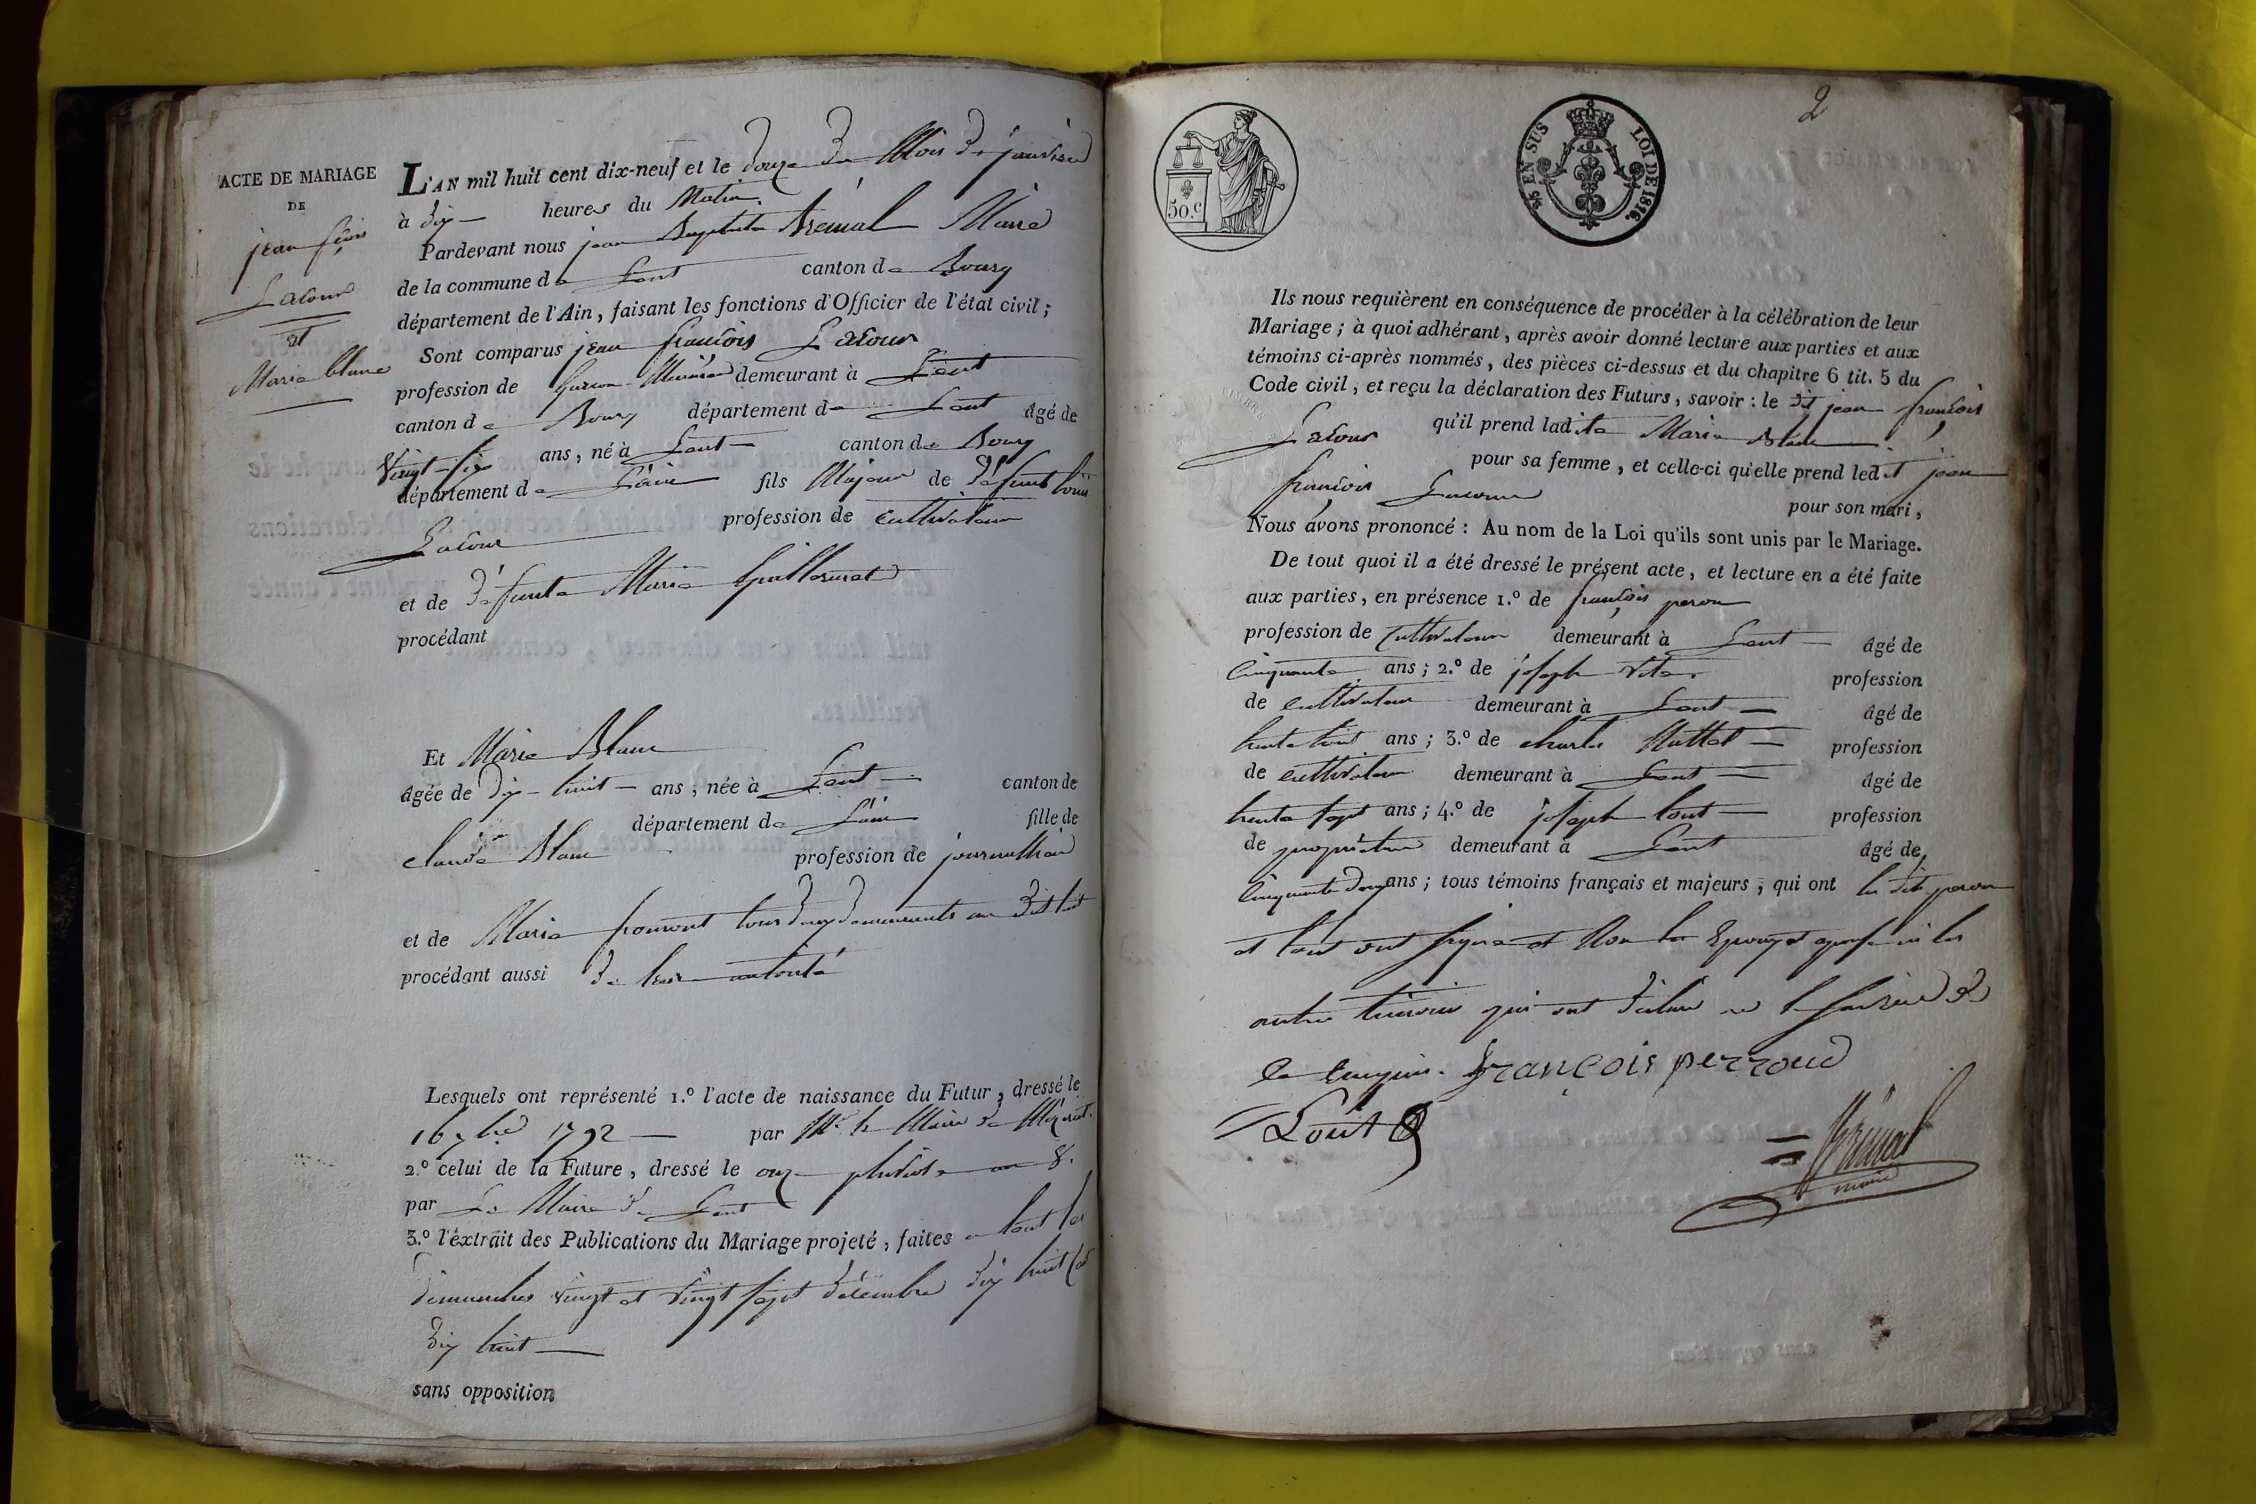 ACTE DE MARIAGE
DE
jean fçois
Lacour
et
Marie blanc
L'AN mil huit cent dix-neuf et le douze du Mois de janvier
à dix heures du Matin.
Pardevant nous jean Baptiste Brémal Maire
de la commune de Lent canton de Bourg
département de l'Ain, faisant les fonctions d'Officier de l'état civil ;
Sont comparus jean françois Lacour
profession de Garcon Meunier demeurant à Lent
canton de Bourg département de Lent âgé de
Vingt-six ans, né à Lent canton de Bourg
département de L'ain fils Majeur de défunt louis
Lacour profession de cultivateur
et de défunte Marie Guillermet
procédant
Et Marie Blanc
âgée de dix-huit ans, née à Lent canton de
département de L'ain fille de
claude Blanc profession de journallier
et de Marie tous deux demeurants au dit lent
procédant aussi de leur autorité
Lesquels ont représenté 1.º l'acte de naissance du Futur, dressé le
16 7bre 1792 par Mr le Maire de Mézeriat.
2.º celui de la Future, dressé le onze pluviose an 8.
par Le Maire de Lent
3.º l'éxtrait des Publications du Mariage projeté, faites a lent les
dimanches vingt et vingt sept décembre dix huit cent
dix huit
sans opposition
2
50.c
EN SUS
LOI DE 1816.
Ils nous requièrent en conséquence de procéder à la célébration de leur
Mariage ; à quoi adhérant, après avoir donné lecture aux parties et aux
témoins ci-après nommés, des pièces ci-dessus et du chapitre 6 tit. 5 du
Code civil, et reçu la déclaration des Futurs, savoir : le dit jean françois
Lacour qu'il prend ladite Marie Blanc
pour sa femme, et celle-ci qu'elle prend ledit jean
françois Lacour pour son mari,
Nous avons prononcé : Au nom de la Loi qu'ils sont unis par le Mariage.
De tout quoi il a été dressé le présent acte, et lecture en a été faite
aux parties, en présence 1.º de françois peron
profession de cultivateur demeurant à Lent âgé de
Cinquante ans ; 2.º de joseph profession
de cultivateur demeurant à Lent âgé de
trente huit ans ; 3.º de charles Muttel profession
de cultivateur demeurant à Lent âgé de
trente sept ans ; 4.º de joseph lout profession
de propriétaire demeurant à Lent âgé de
Cinquante deux ans ; tous témoins français et majeurs ; qui ont les dits peron
et lout ont signé et Non les Epoux et ni les
autres témoins qui ont déclaré ne le savoir de
ce enquis. françois perroud
Lout
Brémal
maire